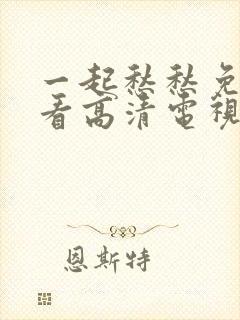 一起愁愁免
看高清電視
恩斯特